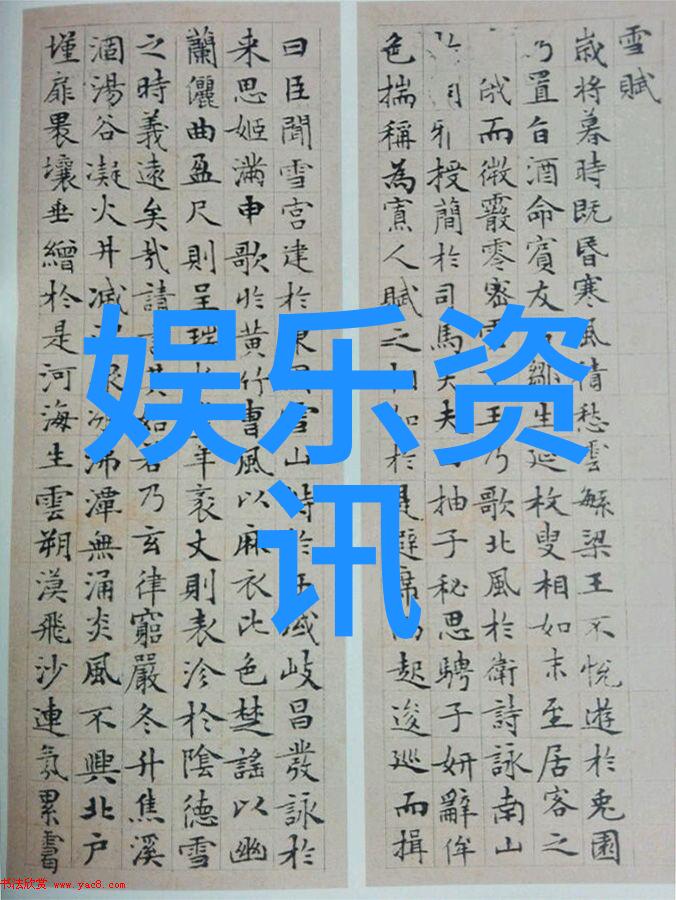 雪賦
歲將暮時既昏寒風愁雲緐梁王不悅遊於兔園
乃置旨酒命賓友鄒生延枚叟相如末至居客之
俄而微霰零密王乃歌北風於衛詩詠南山
授簡於司馬大夫抽子秘思騁子妍辭侔
色揣稱為寡人賦之相如於是避席而起逡巡而揖
曰臣聞雪宮建於東國雪山峙於域岐昌發詠於
来思姬滿申歌於黃竹曹風以麻衣比色楚謠以幽
蘭儷曲盈尺則呈瑞年袤丈則表沴於陰德雪
之時義遠矣哉請言其始若乃玄律窮嚴冬升焦溪
涸湯谷凝火井滅沸潭無涌炎風不興北戶
墐扉壤垂繒於是河海生雲朔漠飛沙連氛累靄
娱乐资
讯
书法欣赏 www.yac8.com